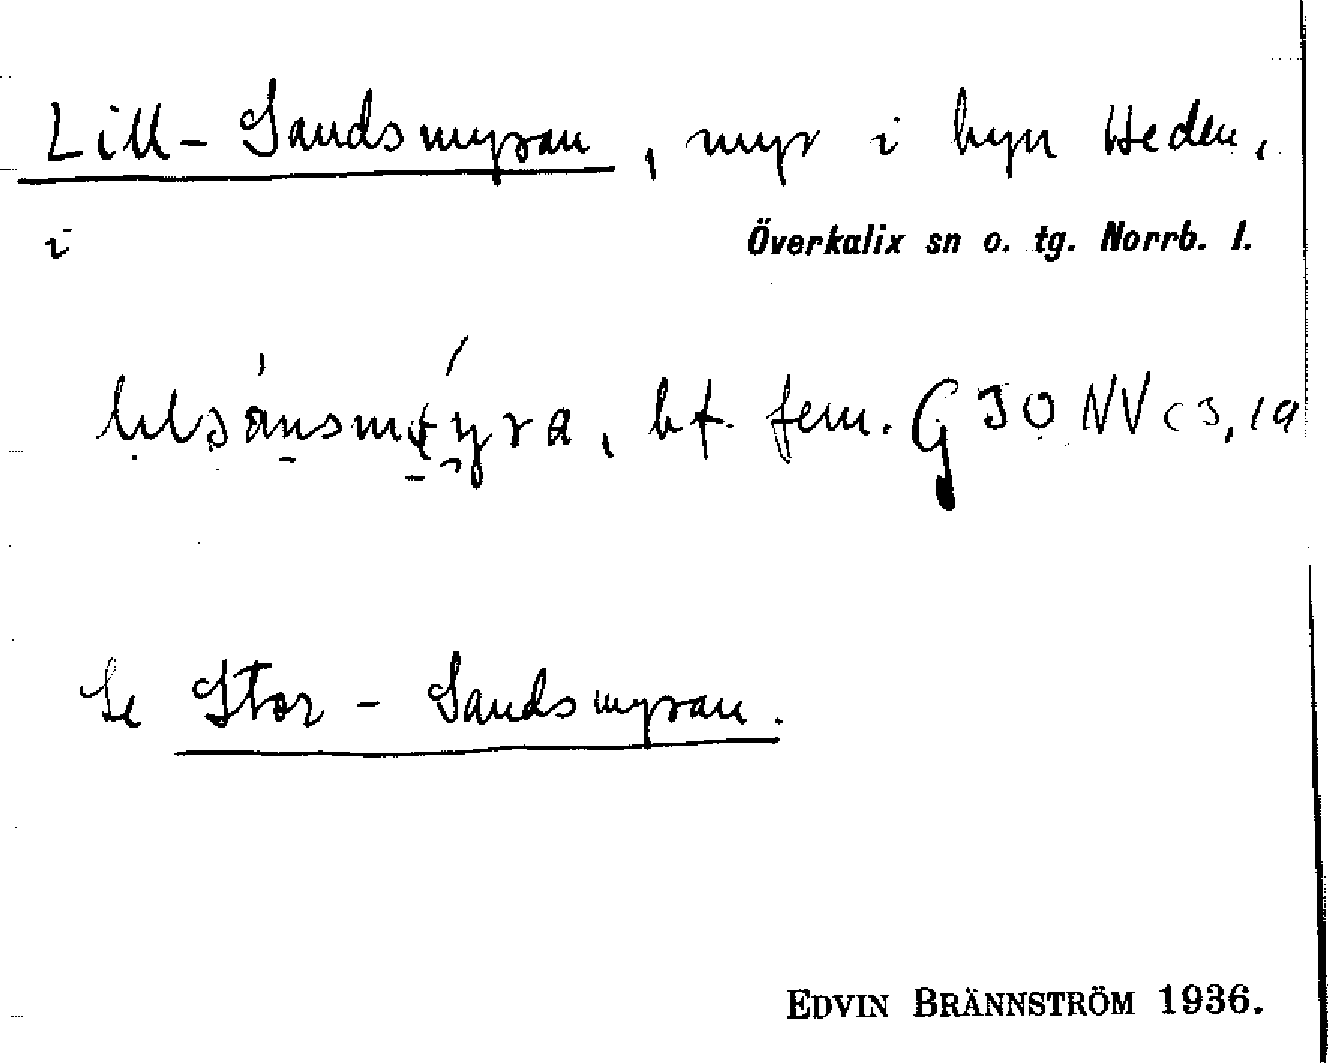 Lill-Sandsmyran, myr i byn Heden,
i Överkalix sn o. tg. Norrb. l.
bf. fem. G 30 NV c3, 1a
Se Stor-Sandsmyran.
EDVIN BRÄNNSTRÖM 1936.